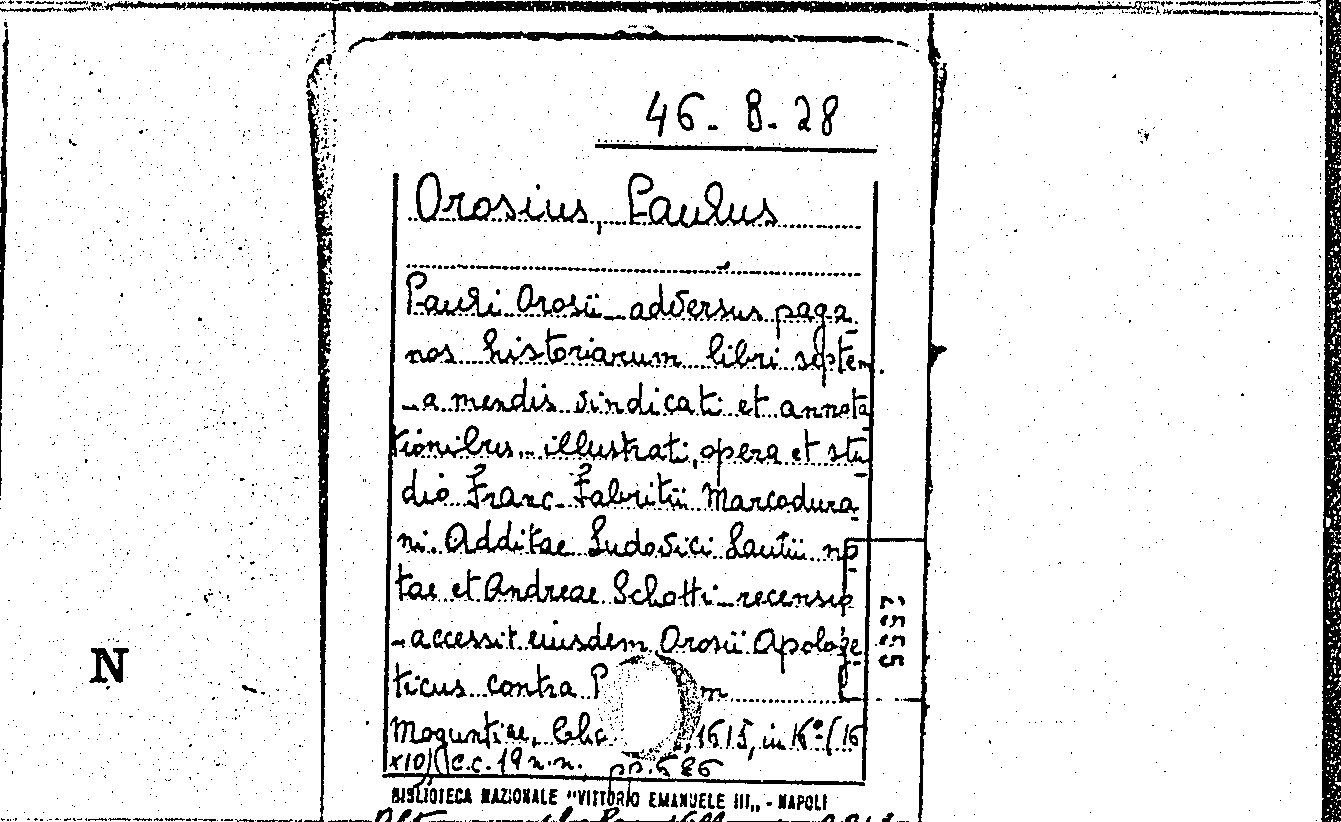 46. B. 28
Orosius, Paulus
Pauli Orosii adversus paga
nos historiarum libri septem.
a mendis vindicati et annota
tionibus illustrati, opera et stu
dio Franc. Fabritii Marcodura
ni. Additae Ludovici Lautii no
tae et Andreae Schotti recensio
accessit eiusdem Orosii Apologe
ticus contra
Moguntiae, 1615, in 16° (16
x10) c.c. 19 n.n., pp. 586
BIBLIOTECA NAZIONALE "VITTORIO EMANUELE III„ - NAPOLI
N